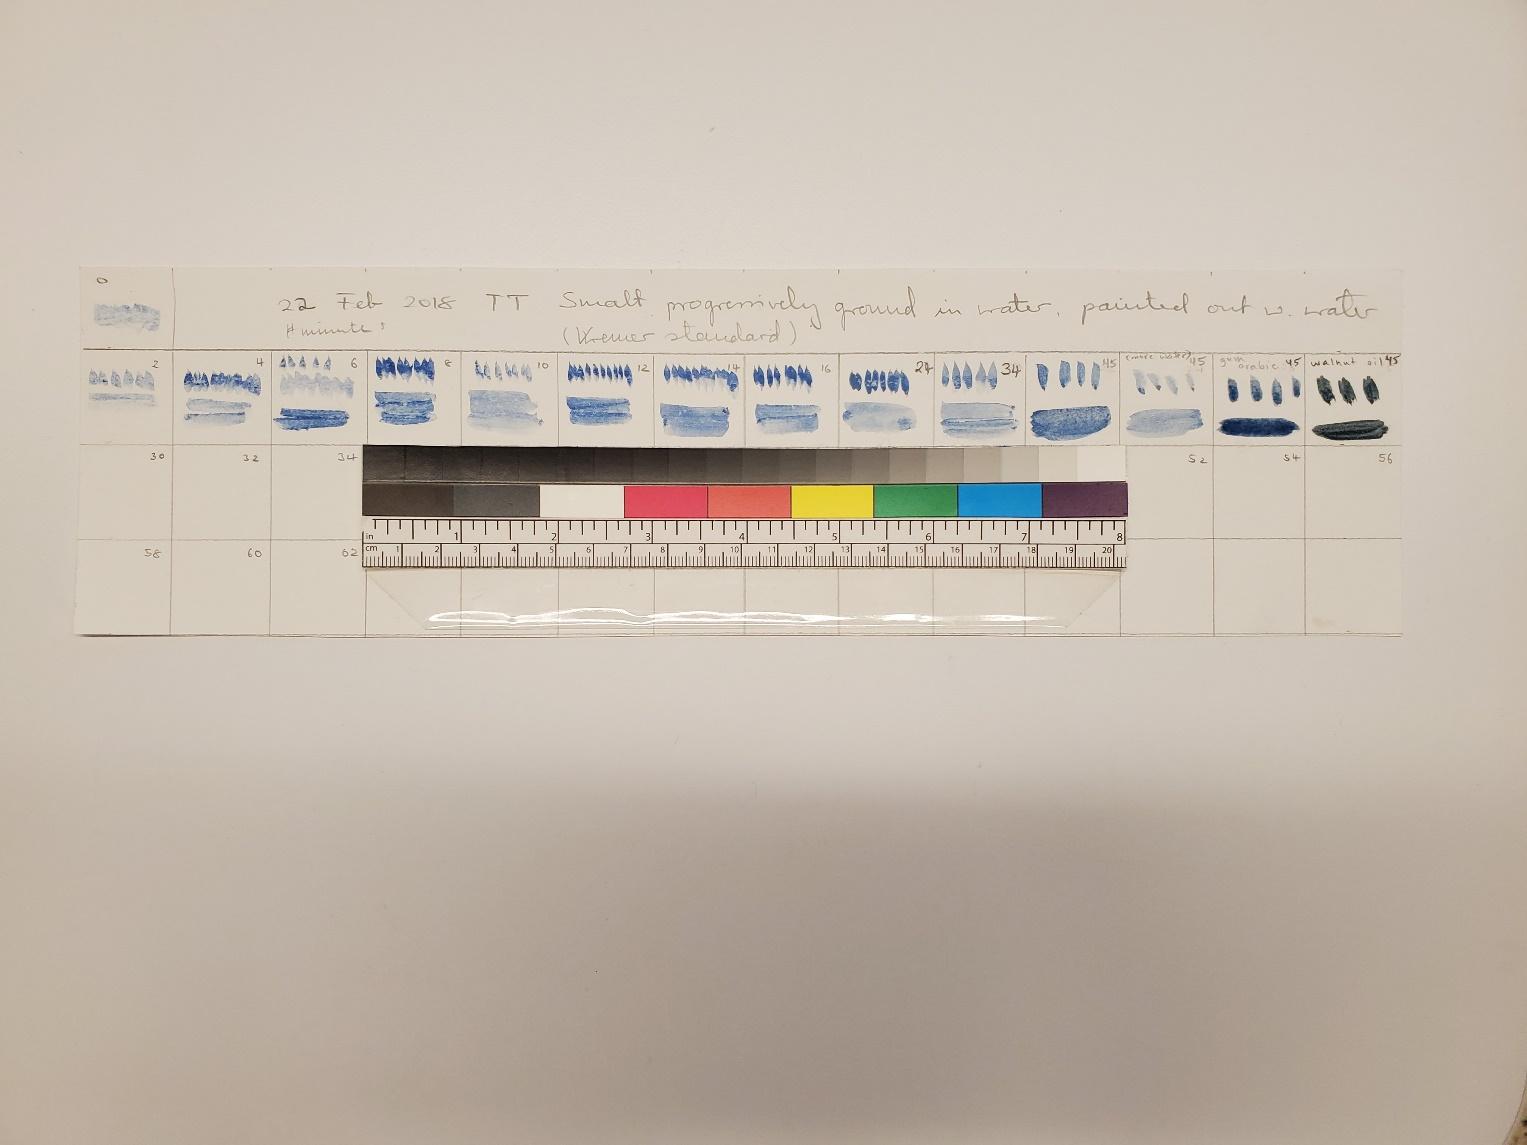 0
22 Feb 2018 TT Smalt progressively ground in water, painted out w. water
# minute's (Kremer standard)
2 4 6 8 10 12 14 16 27 34 45 (more water) 45 gum arabic 45 walnut oil 45
30 32 34 52 54 56
in 1 2 3 4 5 6 7 8
cm 1 2 3 4 5 6 7 8 9 10 11 12 13 14 15 16 17 18 19 20
58 60 62